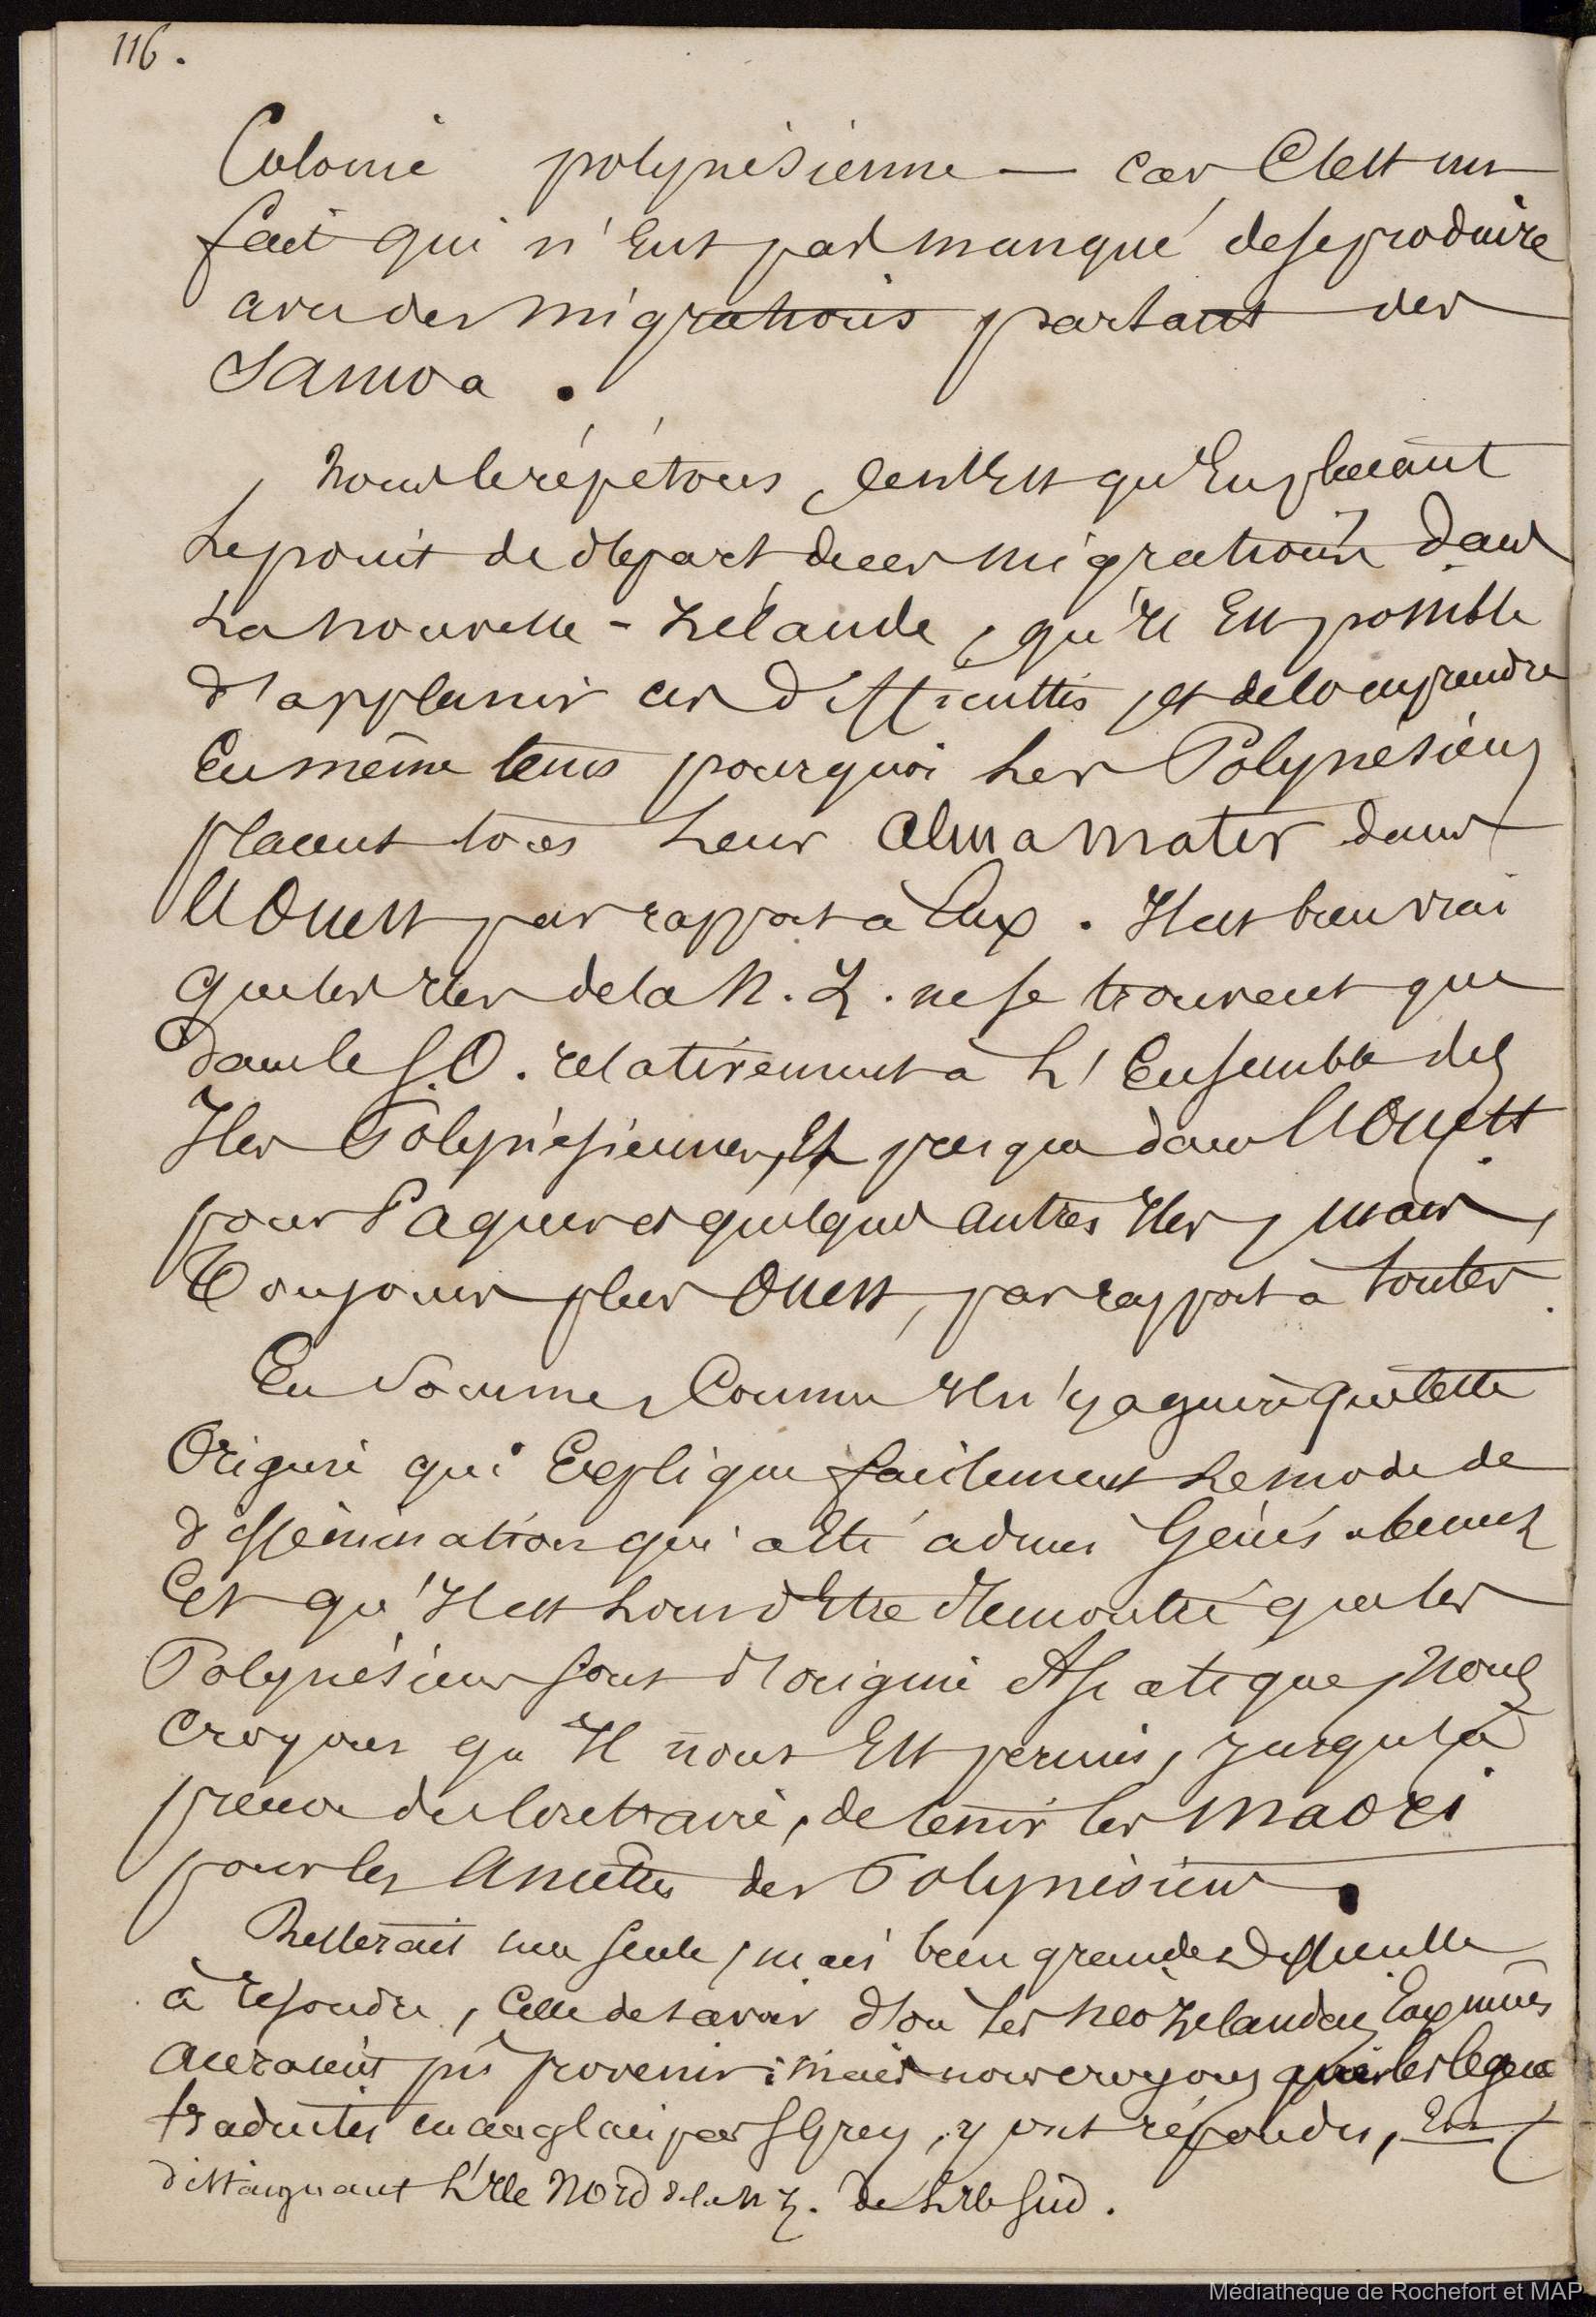 116.
Colonie polynésienne — car c'est un
fait qui n'eut pas manqué de se produire
avec des migrations partant des
Samoa.
Nous le répétons, ce n'est qu'en plaçant
le point de départ de ces migrations dans
la Nouvelle-Zélande, qu'il est possible
d'applanir ces difficultés, et de comprendre
en même tems pourquoi les Polynésiens
placent tous leur alma mater dans
l'Ouest par rapport à eux. Il est bien vrai
que les îles de la N. Z. ne se trouvent que
dans le S.O. relativement à l'ensemble des
Iles Polynésiennes, et presque dans l'Ouest
pour Paques et quelques autres îles, mais,
toujours plus Ouest, par rapport à toutes.
En somme, comme il n'y a guère que cette
origine qui explique facilement le mode de
dissémination qui a été admis généralement
et qu'il est loin d'être démontré que les
Polynésiens sont d'origine Asiatique, nous
croyons qu'il nous est permis, jusqu'à
preuve du contraire, de tenir les Maori
pour les ancêtres des Polynésiens.
Resterait une seule, mais bien grande difficulté
à résoudre, celle de savoir d'où les Néo Zélandais eux mêmes
auraient pu provenir: mais nous croyons que les légendes
traduites en anglais par S Grey, y ont répondu, en
distinguant l'île Nord de la N Z. de l'île Sud.
Médiathèque de Rochefort et MAP